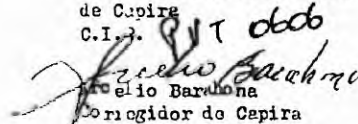 de Capira
C.I.P. PVT 0606
Aurelio Barahona
Aurelio Barahona
Corregidor de Capira